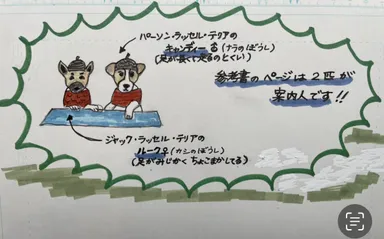 パーソン・ラッセル・テリアの
キャンディー♂(ナラのぼうし)
(足が長くて走るのとくい)
参考書のページは2匹が
案内人です!!
ジャック・ラッセル・テリアの
ルーク♀(カシのぼうし)
(足がみじかく ちょこまかしてる)